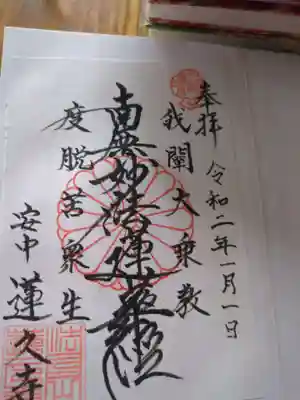 奉拝
令和二年一月一日
我闡大乗教
南無妙法蓮華経
度脱苦衆生
安中 蓮久寺